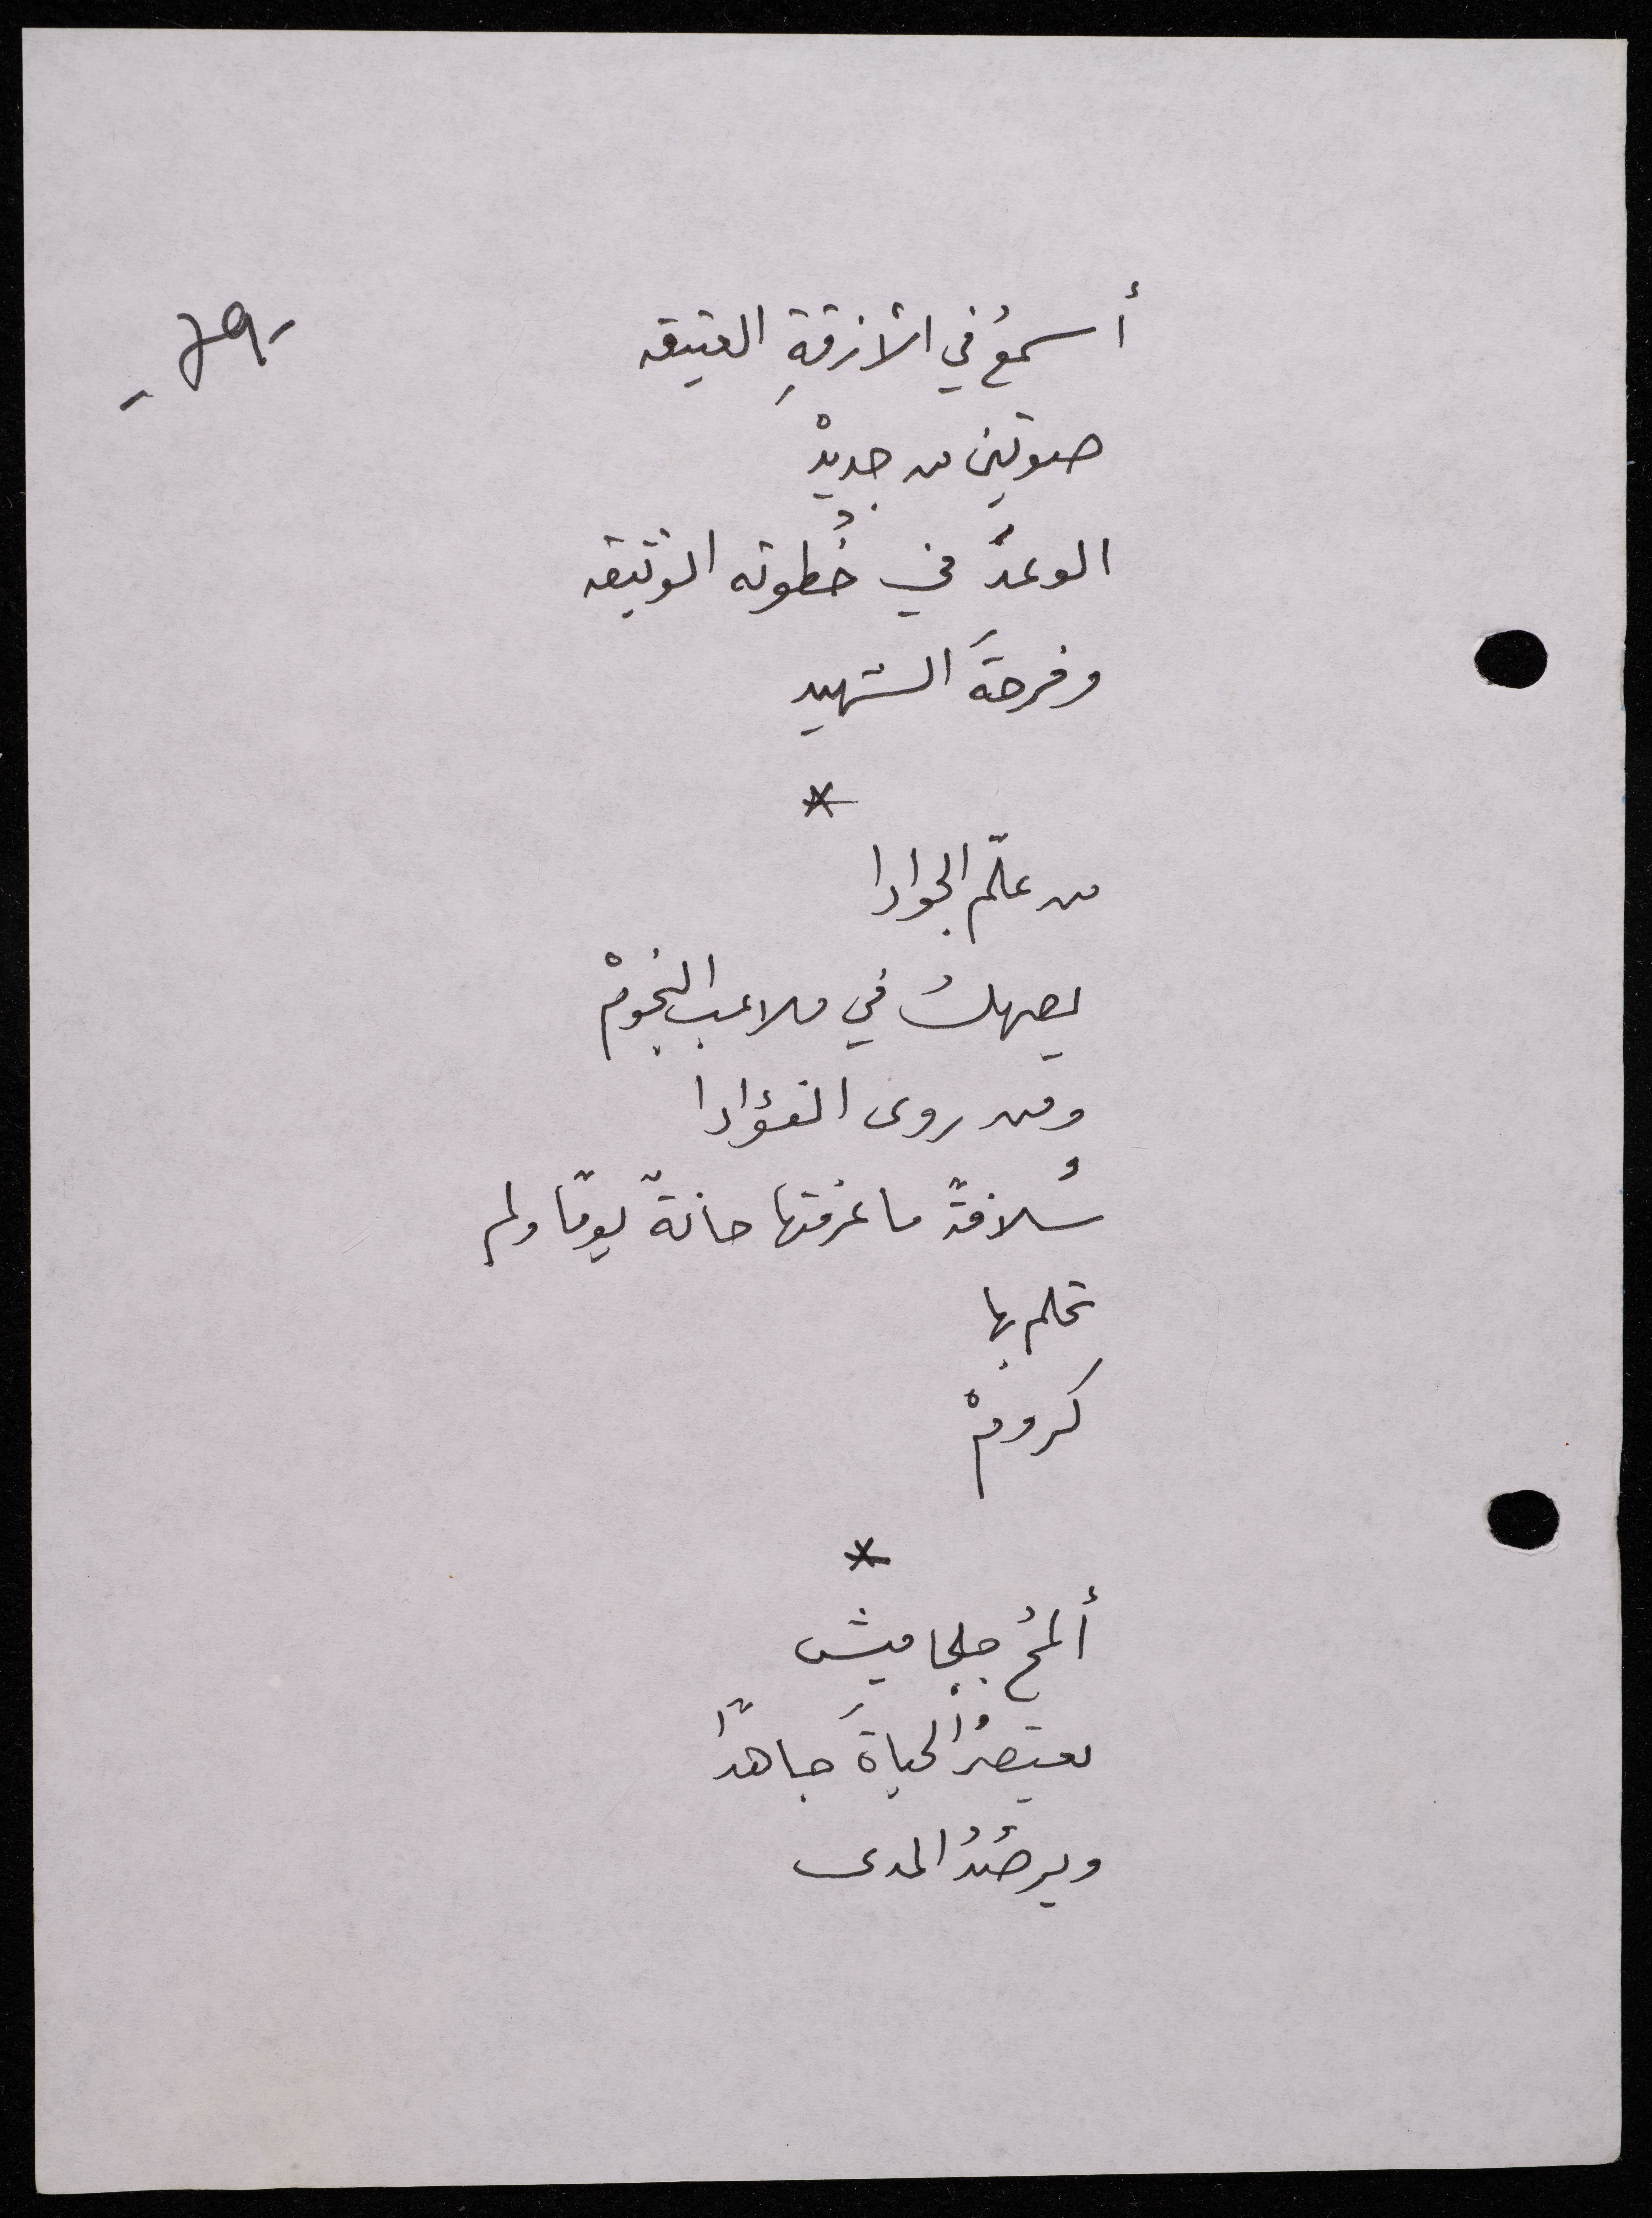 أسمعُ في الأزقةِ العتيقه
صوتين من جديدْ
الوعدَ في خُطوته الوثيقه
وفرحةَ الشهيد
*
من علّم الجوادا
يصهلُ في ملاعب النجومْ
ومن روى الفؤادا
سُلافةً ما عرفتها حانةٌ يومًا ولم
تحلم بها
كرومْ
*
ألمحُ جلجاميش
يعتصرُ الحياةَ جاهدًا
ويرصُدُ المدى